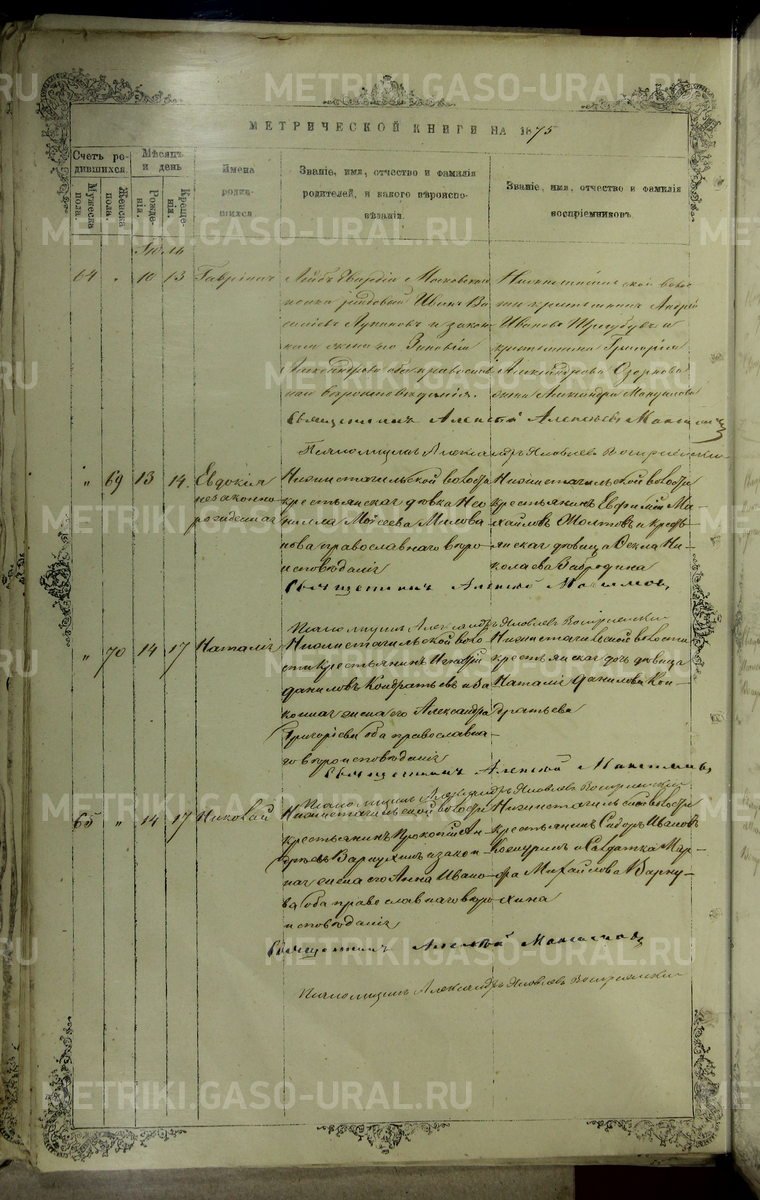 METRIKI.GASO-URAL.RU
МЕТРИЧЕСКОЙ КНИГИ НА 1875
Счетъ родившихся.
Мужеска пола.
Женска пола.
Мѣсяцъ и день
Рожденія.
Крещенія.
Имена родившихся
Званіе, имя, отчество и фамилія родителей, и какого вѣроисповѣданія.
Званіе, имя, отчество и фамилія воспріемниковъ.
Іюль
64 " 10 13 Гавріилъ
Лейбъ Гвардіи Московскаго
Иванъ Ва
и закон
ная жена его Зиновія
Александрова оба православ
наго вѣроисповѣданія.
Нижнетагильской воло
сти крестьянинъ Андрей
Ивановъ и
крестьянина Григорія
Александрова
жена Александра
Священникъ Алексѣй Алексѣевъ Максимовъ
Псаломщикъ Александръ Яковлевъ
" 69 13 14 Евдокія
незаконно
рожденная
Нижнетагильской волости
крестьянская дѣвка Нео
нилла Моисеева
православнаго вѣро
исповѣданія
Нижнетагильской волости
крестьянинъ Евфимій Ми
хайловъ Желтовъ и кресть
янская дѣвица Ѳекла Ни
колаева
Священникъ Алексѣй Максимовъ
Псаломщикъ Александръ Яковлевъ
" 70 14 17 Наталія
Нижнетагильской воло
сти крестьянинъ
Даниловъ Кондратьевъ и за
конная жена его Александра
Григорьева оба православна
го вѣроисповѣданія
Нижнетагильской волости
крестьянская дѣвица
Наталія Данилова Кон
дратьева
Священникъ Алексѣй Максимовъ
Псаломщикъ Александръ Яковлевъ
65 " 14 17 Николай
Нижнетагильской волости
крестьянинъ Прокопій Ан
дреевъ Варнухинъ и закон
ная жена его Анна Ивано
ва оба православнаго вѣро
исповѣданія
Нижнетагильской волости
крестьянинъ Сидоръ Ивановъ
и Солдатка Мар
ѳа Михайлова Варну
хина
Священникъ Алексѣй Максимовъ
Псаломщикъ Александръ Яковлевъ